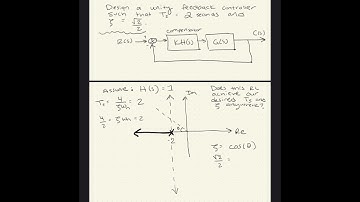 Design a unity feedback controller
Such that Ts = 2 seconds and
ζ = √2/2.
compensator
R(s) + - KH(s) G(s) C(s)
Assume: H(s) = 1
Im
Does this RL
achieve our
desired Ts and
ζ
Ts = 4/ζωn = 2
4/2 = ζωn = 2
θ
-2
Re
ζ = cos(θ)
√2/2 =